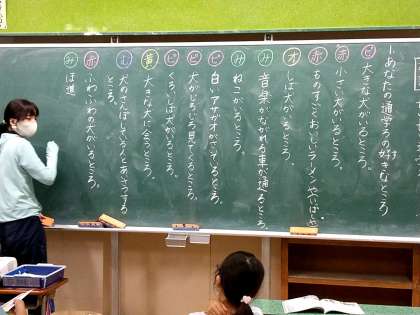 一あなたの通学ろの好きなところ
ピ 大きな犬がいるところ。
赤 小さい犬がいるところ。
赤 ものすごくおいしいラーメンやいばしょ
オ しば犬がいるところ。
み 音楽がながれる車が通るところ。
み ねこがいるところ。
ピ 白いアサガオがさいているところ。
ピ 犬がじろじろ見てくるところ。
ピ くろいしば犬がいるところ。
黄 大きな犬に会うところ。
む 犬のさんぽしている人とあいさつする
ところ。
赤 ふわふわの犬がいるところ。
み ほ道